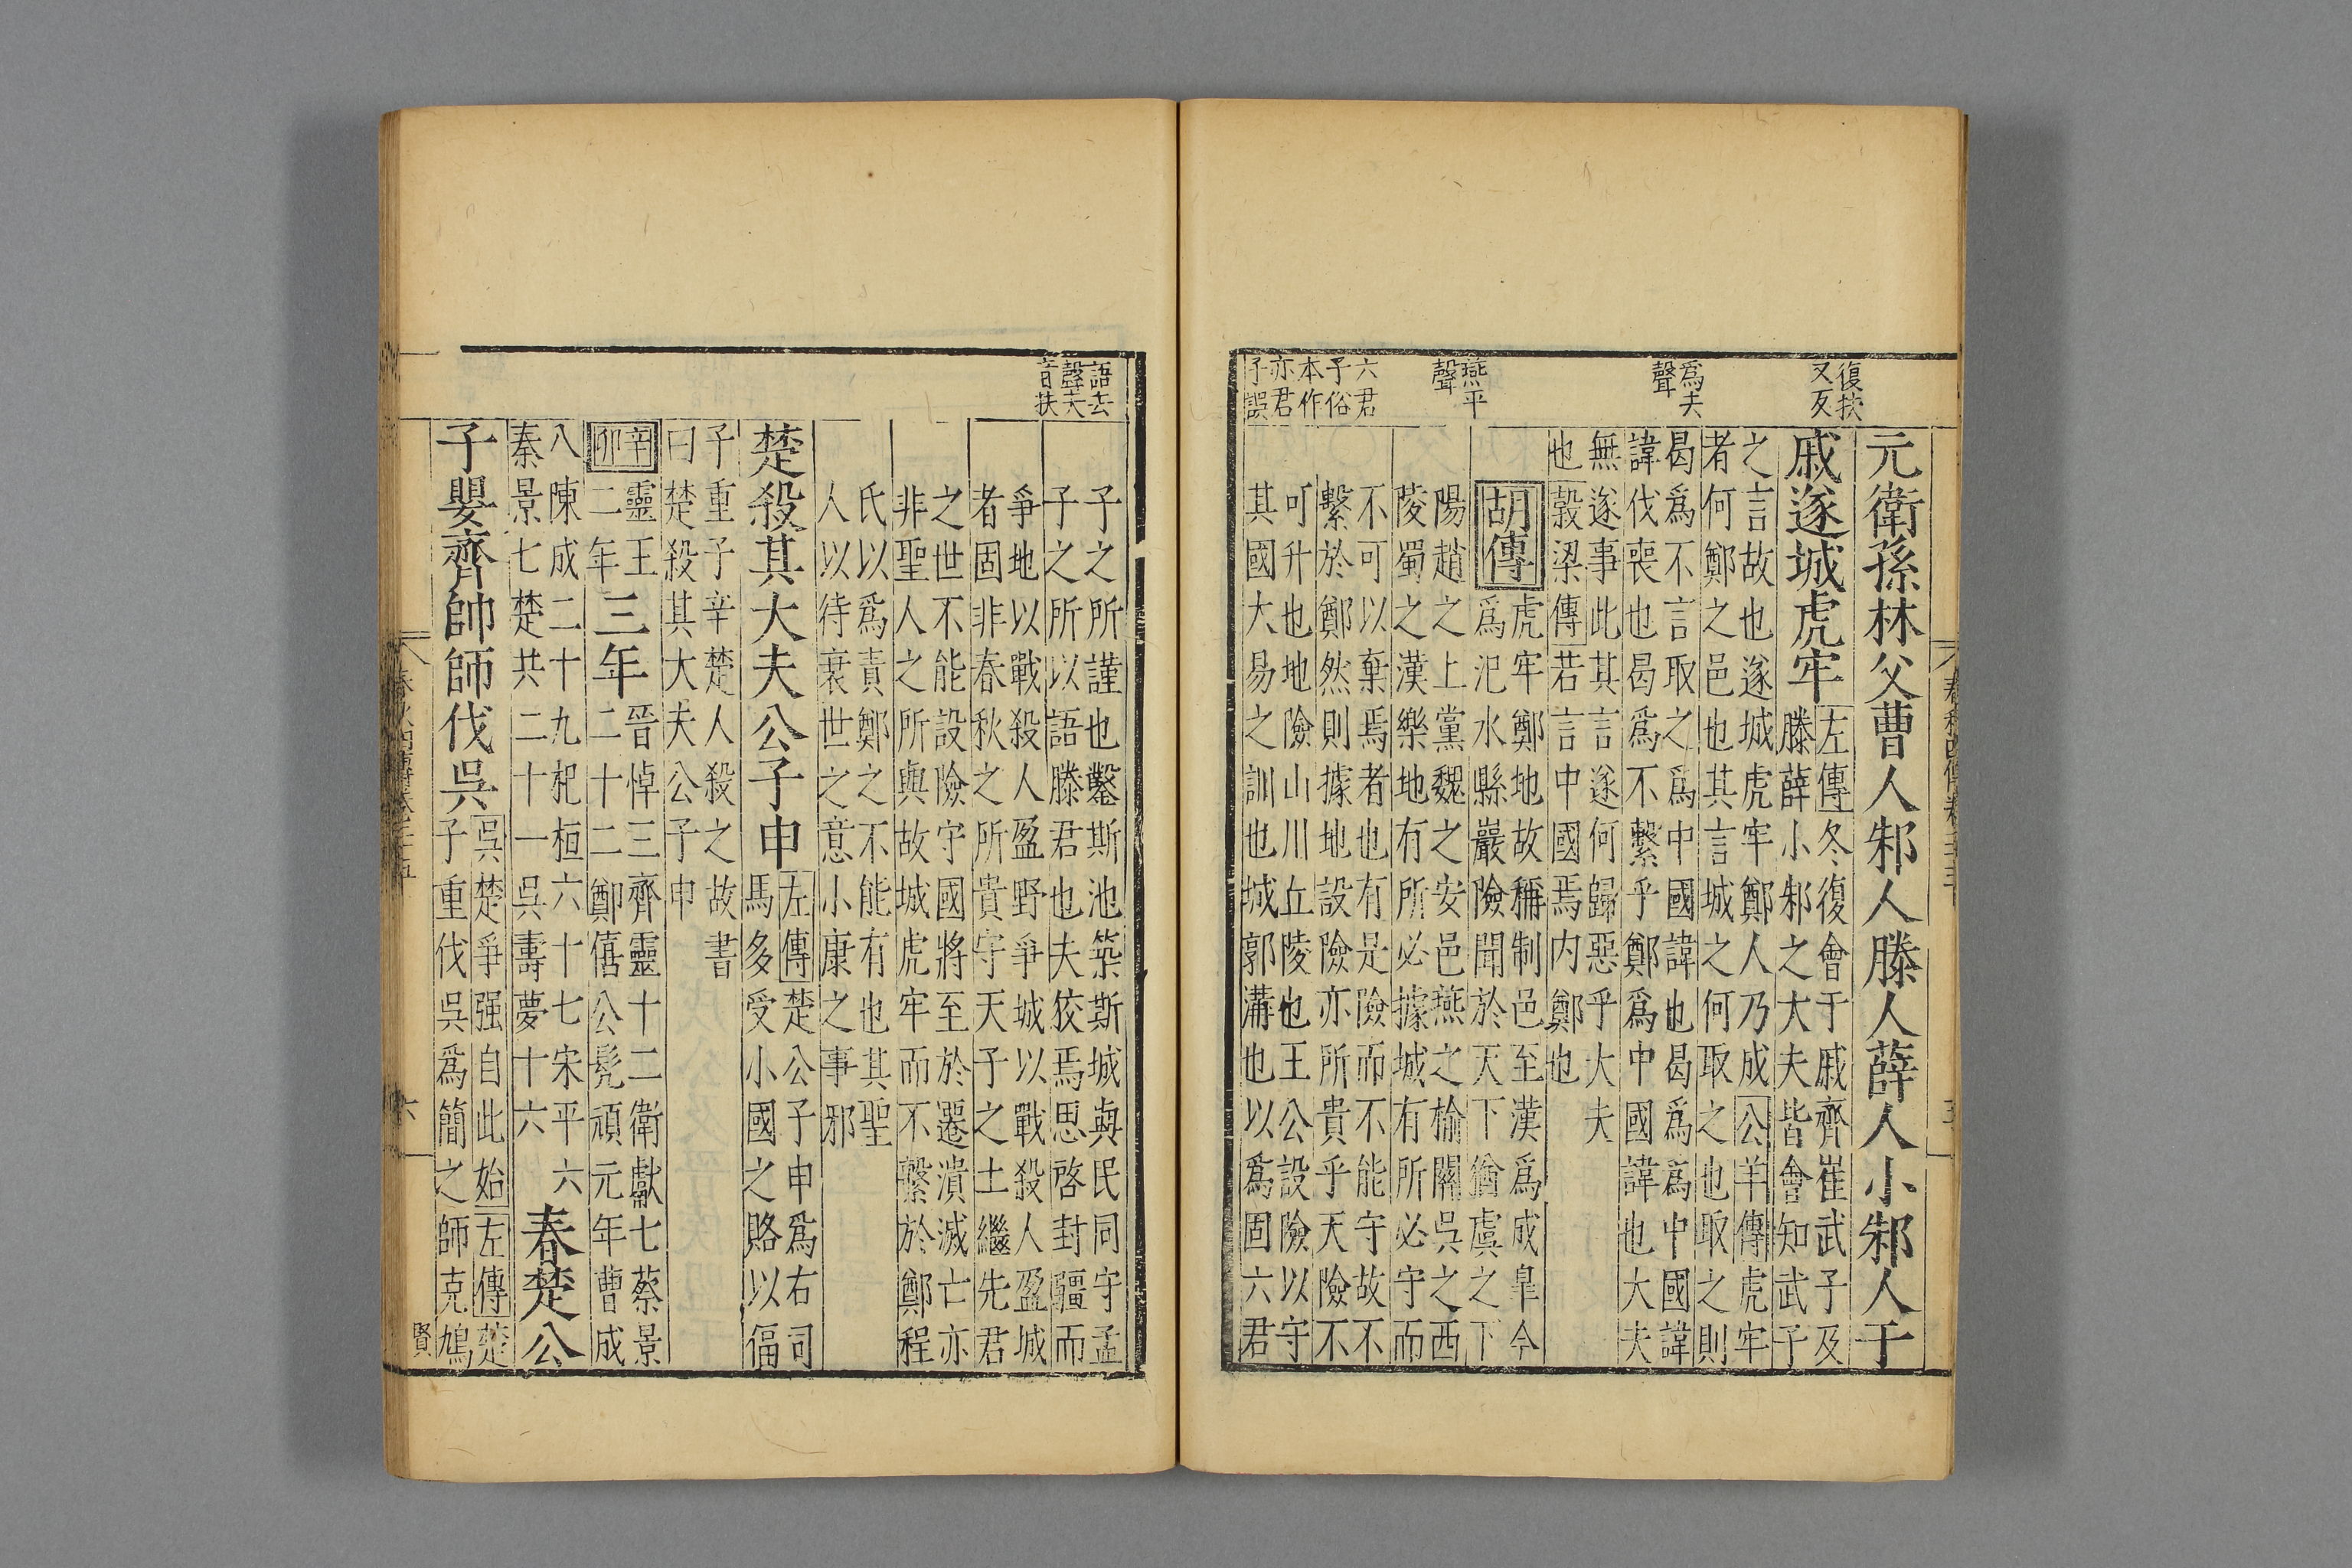 復扶
又反
爲去
聲
燕平
聲
六君
子俗
本作
亦君
子誤
元衛孫林父曹人邾人滕人薛人小邾人于
戚遂城虎牢
左傳冬復會于戚齊崔武子及
滕薛小邾之大夫皆會知武子
之言故也遂城虎牢鄭人乃成公羊傳虎牢
者何鄭之邑也其言城之何取之也取之則
曷爲不言取之爲中國諱也曷爲爲中國諱
諱伐喪也曷爲不繫乎鄭爲中國諱也大夫
無遂事此其言遂何歸惡乎大夫
也穀梁傳若言中國焉内鄭也
胡傳
虎牢鄭地故稱制邑至漢爲成皐今
爲汜水縣巖險聞於天下猶虞之下
陽趙之上黨魏之安邑燕之榆關吳之西
陵蜀之漢樂地有所必據城有所必守而
不可以棄焉者也有是險而不能守故不
繫於鄭然則據地設險亦所貴乎天險不
可升也地險山川丘陵也王公設險以守
其國大易之訓也城郭溝也以爲固六君
語去
聲夫
音扶
子之所謹也鑿斯池築斯城與民同守孟
子之所以語滕君也夫狡焉思啓封疆而
爭地以戰殺人盈野爭城以戰殺人盈城
者固非春秋之所貴守天子之土繼先君
之世不能設險守國將至於遷潰滅亡亦
非聖人之所與故城虎牢而不繫於鄭程
氏以爲責鄭之不能有也其聖
人以待衰世之意小康之事邪
楚殺其大夫公子申
左傳楚公子申爲右司
馬多受小國之賂以偪
子重子辛楚人殺之故書
曰楚殺其大夫公子申
辛卯
靈王
二年
三年
晉悼三齊靈十二衛獻七蔡景
二十二鄭僖公髡頑元年曹成
八陳成二十九杞桓六十七宋平六
秦景七楚共二十一吳壽夢十六
春楚公
子嬰齊帥師伐吳
吳楚爭强自此始左傳楚
子重伐吳爲簡之師克鳩
春秋四傳卷二十五
六
賢